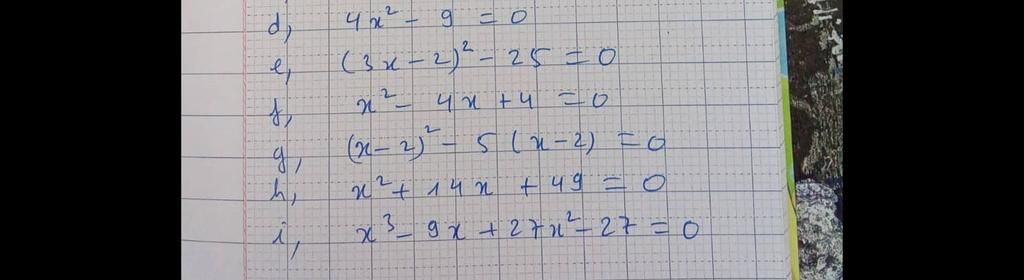 d, 4x² - 9 = 0
e, (3x - 2)² - 25 = 0
f, x² - 4x + 4 = 0
g, (x - 2)² - 5 (x - 2) = 0
h, x² + 14x + 49 = 0
i, x³ - 9x + 27x² - 27 = 0